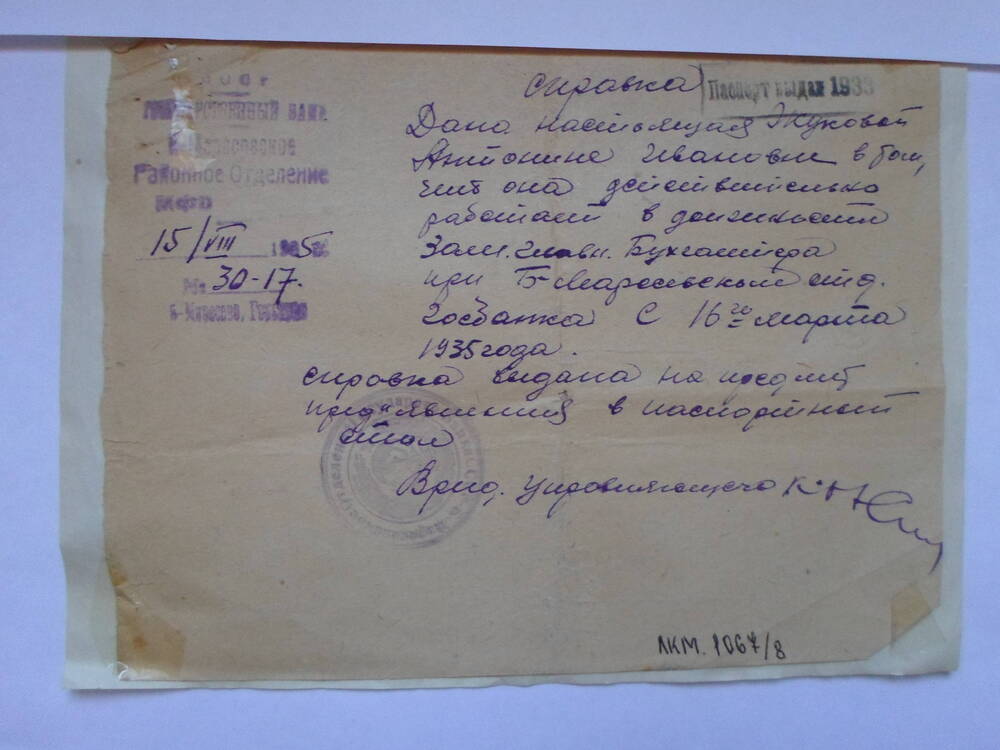 СССР
Государственный Банк
Б-Маресевское
Районное Отделение
15/VIII 1935 г.
№ 30-17.
б-Маресево, Горьк
справка
Паспорт выдан 193
Дана настоящая Жуковой
Антонине Ивановне в том,
что она действительно
работает в должности
Зам. главн. Бухгалтера
при Б-Маресьевском отд.
Госбанка с 16го марта
1935 года.
справка выдана на предмет
пред"явления в паспортный
стол
Врид. Управляющего
ЛКМ. 1067/8